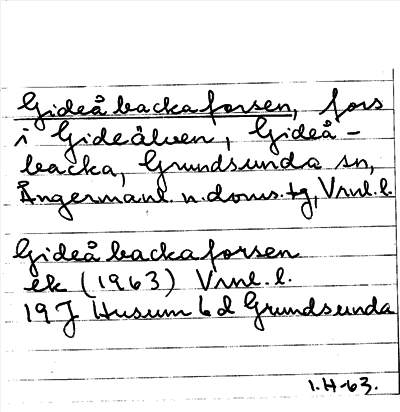 Gideåbackaforsen, fors
i Gideälven, Gideå-
backa, Grundsunda sn,
Ångermanl. n. doms. tg, Vrnl. l.
Gideåbackaforsen
ek (1963) Vrnl. l.
19J Husum 6 d Grundsunda
1.H-63.